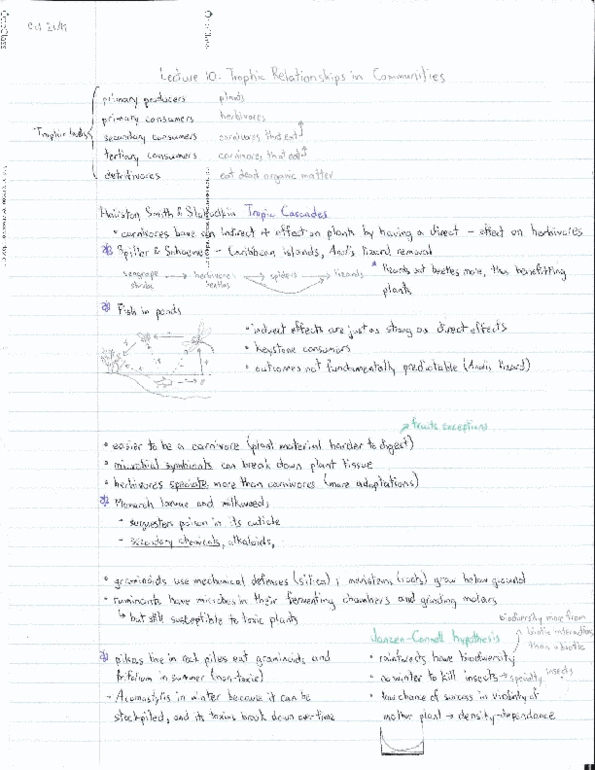 Oct 21/19
OneClass
OneClass
Lecture 10: Trophic Relationships in Communities
Trophic levels
primary producers plants
primary consumers herbivores
secondary consumers carnivores that eat
tertiary consumers carnivores that eat
detritivores eat dead organic matter
Hairston Smith & Tropic Cascades
• carnivores have an indirect + effect on plants by having a direct - effect on herbivores
Spiller & - Caribbean islands, Anolis lizard removal
seagrape → herbivores → spiders → lizards
shrubs beetles
* lizards eat beetles more, thus benefitting
plants
Fish in ponds
• indirect effects are just as strong as direct effects
• keystone consumers
• outcomes not fundamentally predictable (Anolis lizard)
↗ fruits exceptions
• easier to be a carnivore (plant material harder to digest)
• microbial symbionts can break down plant tissue
• herbivores speciate more than carnivores (more adaptations)
Monarch larvae and milkweed;
- sequesters poison in its cuticle
- secondary chemicals, alkaloids,
• graminoids use mechanical defenses (silica); meristems (roots) grow below ground
• ruminants have microbes in their fermenting chambers and grinding molars
↳ but still susceptible to toxic plants
biodiversity more from
biotic interactions
than abiotic
Janzen-Connell hypothesis
pikas live in rock piles eat graminoids and
trifolium in summer (non-toxic)
- Acomastylis in winter because it can be
stockpiled, and its toxins break down over time
• rainforests have biodiversity
• no winter to kill insects → specialty insects
• low chance of success in vicinity of
mother plant → density-dependance